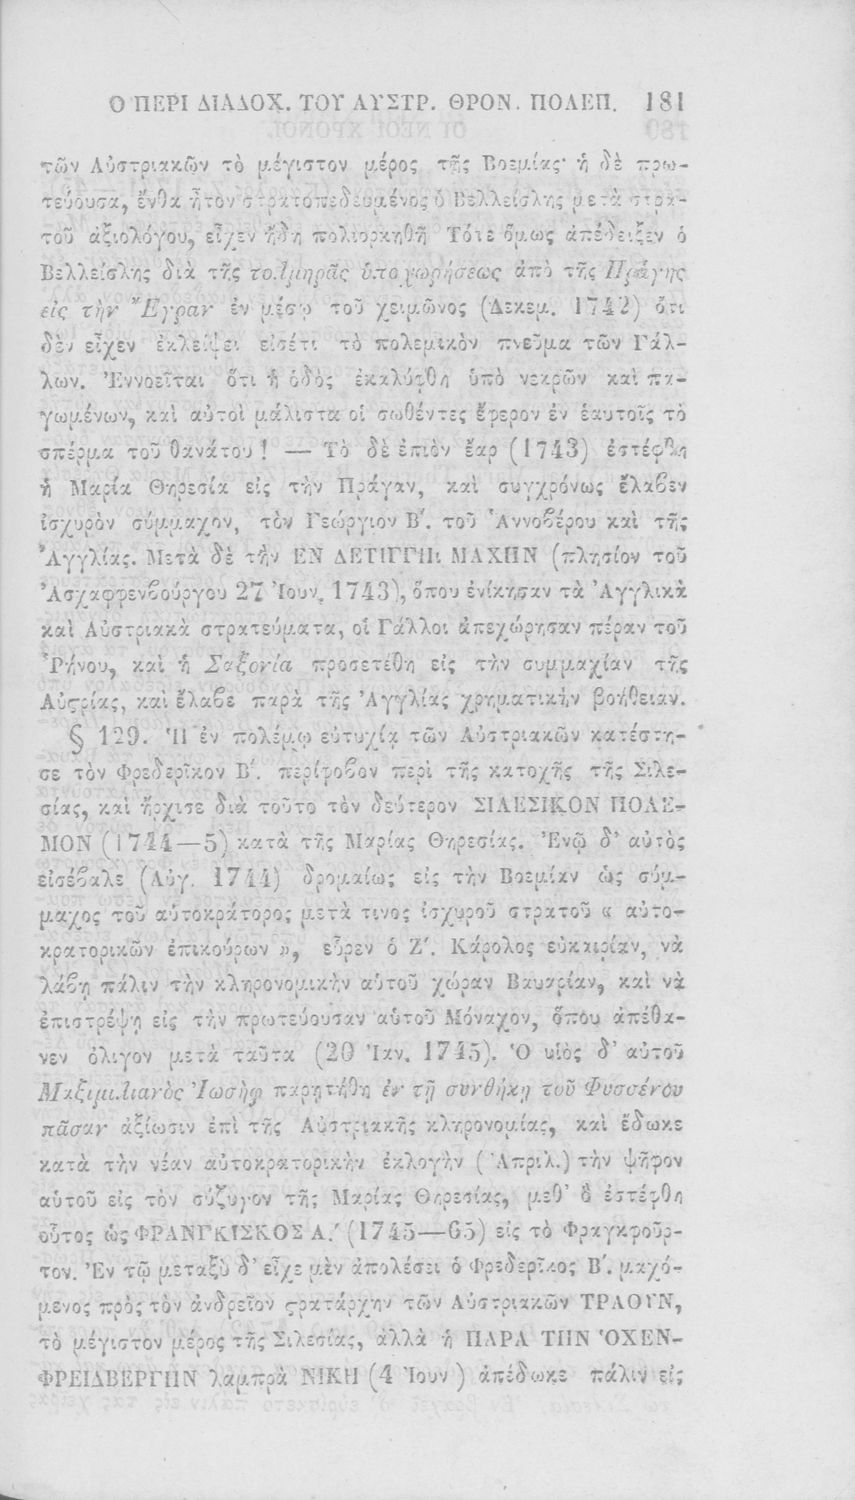 Ο ΠΕΡΙ ΔΙΑΔΟΧ. ΤΟΥ ΑΥΣΤΡ. ΘΡΟΝ. ΠΟΛΕΠ. 181
τῶν Αὐστριακῶν τὸ μέγιστον μέρος τῆς Βοεμίας· ἡ δὲ πρω-
τεύουσα, ἔνθα ἦτον στρατοπεδευμένος ὁ Βελλείσλης μετὰ στρα-
τοῦ ἀξιολόγου, εἶχεν ἤδη πολιορκηθῆ Τότε ὅμως ἀπέδειξεν ὁ
Βελλείσλης διὰ τῆς τολμηρᾶς ὑποχωρήσεως ἀπὸ τῆς Πράγης
εἰς τὴν Ἔγραν ἐν μέσῳ τοῦ χειμῶνος (Δεκεμ. 1742) ὅτι
δὲν εἶχεν ἐκλείψει εἰσέτι τὸ πολεμικὸν πνεῦμα τῶν Γάλ-
λων. Ἐννοεῖται ὅτι ἡ ὁδὸς ἐκαλύφθη ὑπὸ νεκρῶν καὶ πα-
γωμένων, καὶ αὐτοὶ μάλιστα οἱ σωθέντες ἔφερον ἐν ἑαυτοῖς τὸ
σπέρμα τοῦ θανάτου! — Τὸ δὲ ἐπιὸν ἔαρ (1743) ἐστέφθη
ἡ Μαρία Θηρεσία εἰς τὴν Πράγαν, καὶ συγχρόνως ἔλαβεν
ἰσχυρὸν σύμμαχον, τὸν Γεώργιον Β΄. τοῦ Ἀννοβέρου καὶ τῆς
Ἀγγλίας. Μετὰ δὲ τὴν ΕΝ ΔΕΤΙΓΓΗι ΜΑΧΗΝ (πλησίον τοῦ
Ἀσχαφφενβούργου 27 Ἰουν. 1743), ὅπου ἐνίκησαν τὰ Ἀγγλικὰ
καὶ Αὐστριακὰ στρατεύματα, οἱ Γάλλοι ἀπεχώρησαν πέραν τοῦ
Ῥήνου, καὶ ἡ Σαξονία προσετέθη εἰς τὴν συμμαχίαν τῆς
Αὐςρίας, καὶ ἔλαβε παρὰ τῆς Ἀγγλίας χρηματικὴν βοήθειαν.
§ 129. Ἡ ἐν πολέμῳ εὐτυχία τῶν Αὐστριακῶν κατέστη-
σε τὸν Φρεδερῖκον Β΄. περίφοβον περὶ τῆς κατοχῆς τῆς Σιλε-
σίας, καὶ ἤρχισε διὰ τοῦτο τὸν δεύτερον ΣΙΛΕΣΙΚΟΝ ΠΟΛΕ-
ΜΟΝ (1744—5) κατὰ τῆς Μαρίας Θηρεσίας. Ἐνῷ δ' αὐτὸς
εἰσέβαλε (Αὐγ. 1744) δρομαίως εἰς τὴν Βοεμίαν ὡς σύμ-
μαχος τοῦ αὐτοκράτορος μετά τινος ἰσχυροῦ στρατοῦ « αὐτο-
κρατορικῶν ἐπικούρων », εὗρεν ὁ Ζ΄. Κάρολος εὐκαιρίαν, νὰ
λάβη πάλιν τὴν κληρονομικὴν αὑτοῦ χώραν Βαυαρίαν, καὶ νὰ
ἐπιστρέψη εἰς τὴν πρωτεύουσαν αὑτοῦ Μόναχον, ὅπου ἀπέθα-
νεν ὀλίγον μετὰ ταῦτα (20 Ἰαν. 1745). Ὁ υἱὸς δ' αὐτοῦ
Μαξιμιλιανὸς Ἰωσὴφ παρῃτήθη ἐν τῇ συνθήκῃ τοῦ Φυσσένου
πᾶσαν ἀξίωσιν ἐπὶ τῆς Αὐστριακῆς κληρονομίας, καὶ ἔδωκε
κατὰ τὴν νέαν αὐτοκρατορικὴν ἐκλογὴν ( Ἀπριλ.) τὴν ψῆφον
αὑτοῦ εἰς τὸν σύζυγον τῆς Μαρίας Θηρεσίας, μεθ' ὃ ἐστέφθη
οὗτος ὡς ΦΡΑΝΓΚΙΣΚΟΣ Α.΄ (1745—65) εἰς τὸ Φραγκφοῦρ-
τον. Ἐν τῷ μεταξὺ δ' εἶχε μὲν ἀπολέσει ὁ Φρεδερῖκος Β΄. μαχό-
μενος πρὸς τὸν ἀνδρεῖον ςρατάρχην τῶν Αὐστριακῶν ΤΡΑΟΥΝ,
τὸ μέγιστον μέρος τῆς Σιλεσίας, ἀλλὰ ἡ ΠΑΡΑ ΤΗΝ ὉΧΕΝ-
ΦΡΕΙΔΒΕΡΓΗΝ λαμπρὰ ΝΙΚΗ (4 Ἰουν ) ἀπέδωκε πάλιν εἰς